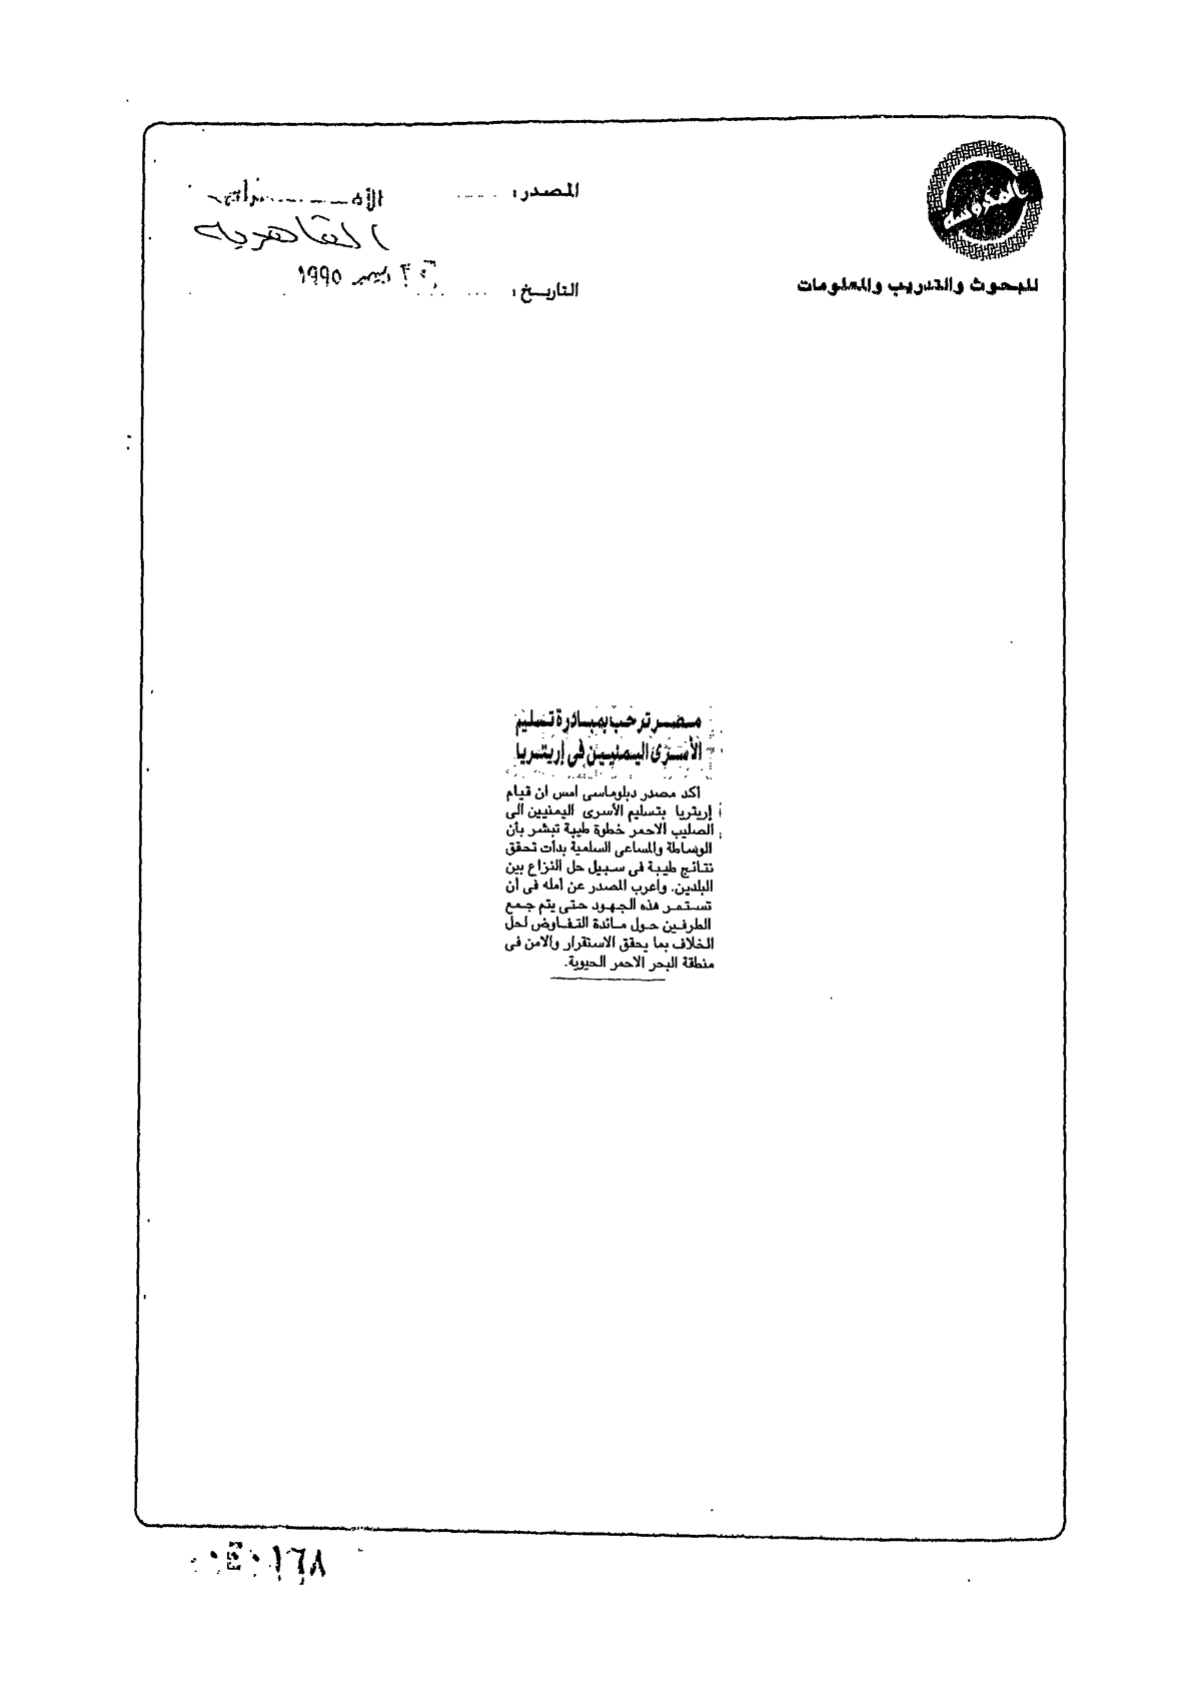 المحروسة
للبحوث والتدريب والمعلومات
المصدر :
القاهرية
التاريخ : ديسمبر ١٩٩٥
مصر ترحب بمبادرة تسليم
الأسرى اليمنيين فى إريتريا
اكد مصدر دبلوماسى امس ان قيام
إريتريا بتسليم الأسرى اليمنيين الى
الصليب الاحمر خطوة طيبة تبشر بأن
الوساطة والمساعى السلمية بدأت تحقق
نتائج طيبة فى سبيل حل النزاع بين
البلدين. وأعرب المصدر عن أمله فى أن
تستمر هذه الجهود حتى يتم جمع
الطرفين حول مائدة التفاوض لحل
الخلاف بما يحقق الاستقرار والامن فى
منطقة البحر الاحمر الحيوية.